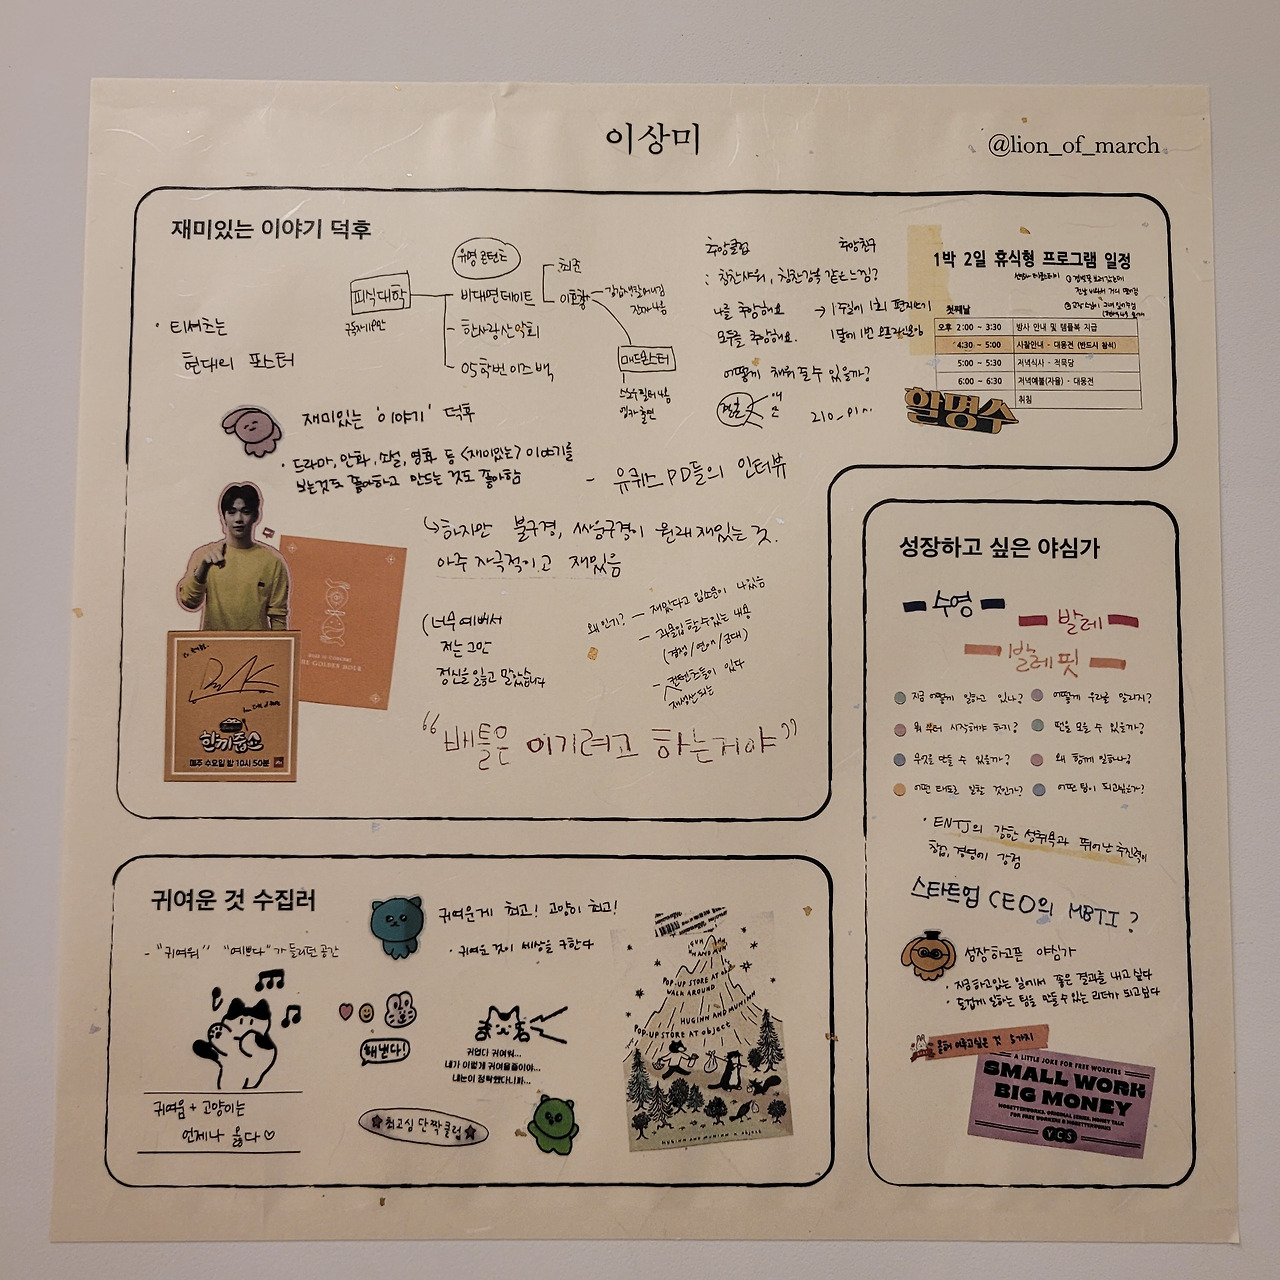 이상미
@lion_of_march
재미있는 이야기 덕후
유명 콘텐츠
피식대학
비대면데이트
한사랑산악회
05학번이즈백
최준
이호창
매드몬스터
· 티셔츠는
현대의 포스터
추앙클럽
추앙친구
: 칭찬샤워, 칭찬감옥 같은 느낌?
나를 추앙해요
→ 1주일에 1회 편지쓰기
모두를 추앙해요.
1달에 1번 오프라인모임
어떻게 채워줄 수 있을까?
1박 2일 휴식형 프로그램 일정
첫째날
오후 2:00 ~ 3:30 방사 안내 및 템플복 지급
4:30 ~ 5:00 사찰안내 - 대웅전 (반드시 참석)
5:00 ~ 5:30 저녁식사 - 적묵당
6:00 ~ 6:30 저녁예불(자율) - 대웅전
취침
할명수
재미있는 '이야기' 덕후
· 드라마, 만화, 소설, 영화 등 <재미있는> 이야기를
보는것도 좋아하고 만드는 것도 좋아함
- 유퀴즈 PD들의 인터뷰
↳하지만 불구경, 싸움구경이 원래 재밌는 것.
아주 자극적이고 재밌음
(너무 예뻐서
저는 그만
정신을 잃고 말았습니다
왜 인기?
- 재밌다고 입소문이 나있음
- 과몰입 할 수 있는 내용
(경쟁/연애/군대)
- 컨텐츠들이 있다
재생산되는
THE GOLDEN HOUR
한끼줍쇼
매주 수요일 밤 10시 50분
“배틀은 이기려고 하는거야”
성장하고 싶은 야심가
수영
발레
발레핏
지금 어떻게 일하고 있나?
어떻게 우리를 알리지?
뭐 부터 시작해야 하지?
떤을 모을 수 있을까?
무엇을 만들 수 있을까?
왜 함께 일하나?
어떤 태도로 일할 것인가?
어떤 팀이 되고싶은가?
· ENTJ의 강한 성취욕과 뛰어난 추진력이
창업, 경영에 강점
스타트업 CEO의 MBTI ?
성장하고픈 야심가
· 지금 하고있는 일에서 좋은 결과를 내고싶다
· 즐겁게 일하는 팀을 만들 수 있는 리더가 되고싶다
올해 이루고싶은 것 5가지
A LITTLE JOKE FOR FREE WORKERS
SMALL WORK
BIG MONEY
MOBETTERWORKS. ORIGINAL SERIES, MONEY TALK
FOR FREE WORKERS & MOBETTERWORKS
YCS
귀여운 것 수집러
- “귀여워” “예쁘다”가 들리던 공간
귀여운게 최고! 고양이 최고!
· 귀여운 것이 세상을 구한다
해낸다!
귀엽다 귀여워...
내가 이렇게 귀여울줄이야...
내눈이 정확했다니까...
귀여움 + 고양이는
언제나 옳다♡
최고심 단짝클럽
POP-UP STORE AT object
WALK AROUND
HUGINN AND MUNINN
POP-UP STORE AT object
HUGINN AND MUNINN × object